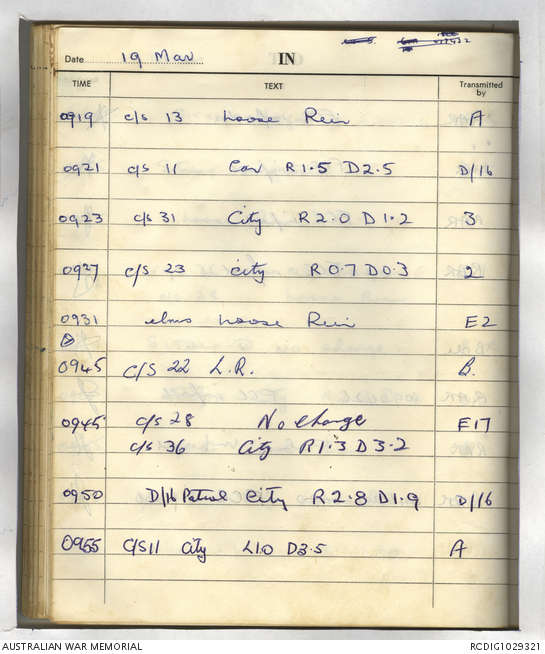 Date 19 Mar IN
TIME TEXT Transmitted by
0919 c/s 13 Loose Rein A
0921 c/s 11 Car R1.5 D2.5 D/16
0923 c/s 31 City R2.0 D1.2 3
0927 c/s 23 City R0.7 D0.3 2
0931 elms Loose Rein E2
0945 C/S 22 L.R. B.
0945 c/s 28 No change E17
c/s 36 City R1.3 D3.2
0950 D/16 Patrol City R2.8 D1.9 D/16
0955 C/S 11 City L1.0 D3.5 A
AUSTRALIAN WAR MEMORIAL RCDIG1029321